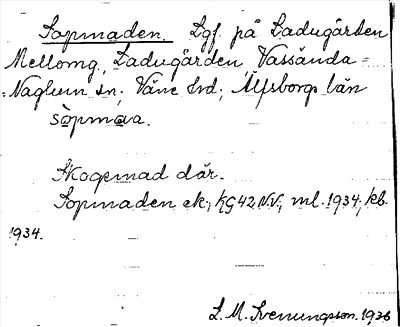 Sopmaden. Lgf. på Ladugården
Mellomg, Ladugården Vassända=
=Naglum sn; Väne hd; Älfsborgs län
sòpmaa.
Skogsmad där.
Sopmaden ek; KG42 N.V.; ml. 1934; kb.
1934.
L. M. Svenungsson. 1936